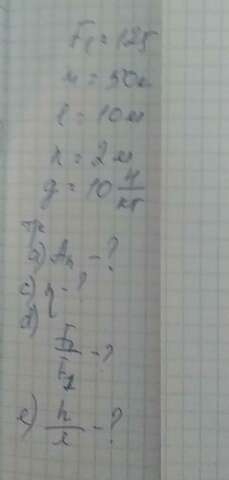 F₁ = 125
м = 50к
l = 10м
h = 2м
g = 10 Н/кг
a) Aп - ?
c) η - ?
d)
F₁/F₂ - ?
e) h/l - ?